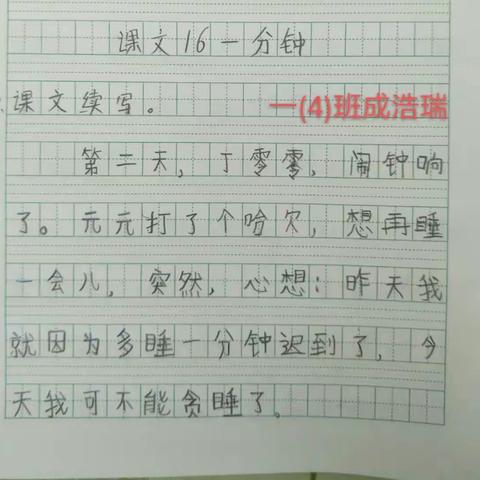 课文16一分钟
课文续写。 一(4)班成浩瑞
第二天，丁零零，闹钟响
了。元元打了个哈欠，想再睡
一会儿，突然，心想：昨天我
就因为多睡一分钟迟到了，今
天我可不能贪睡了。